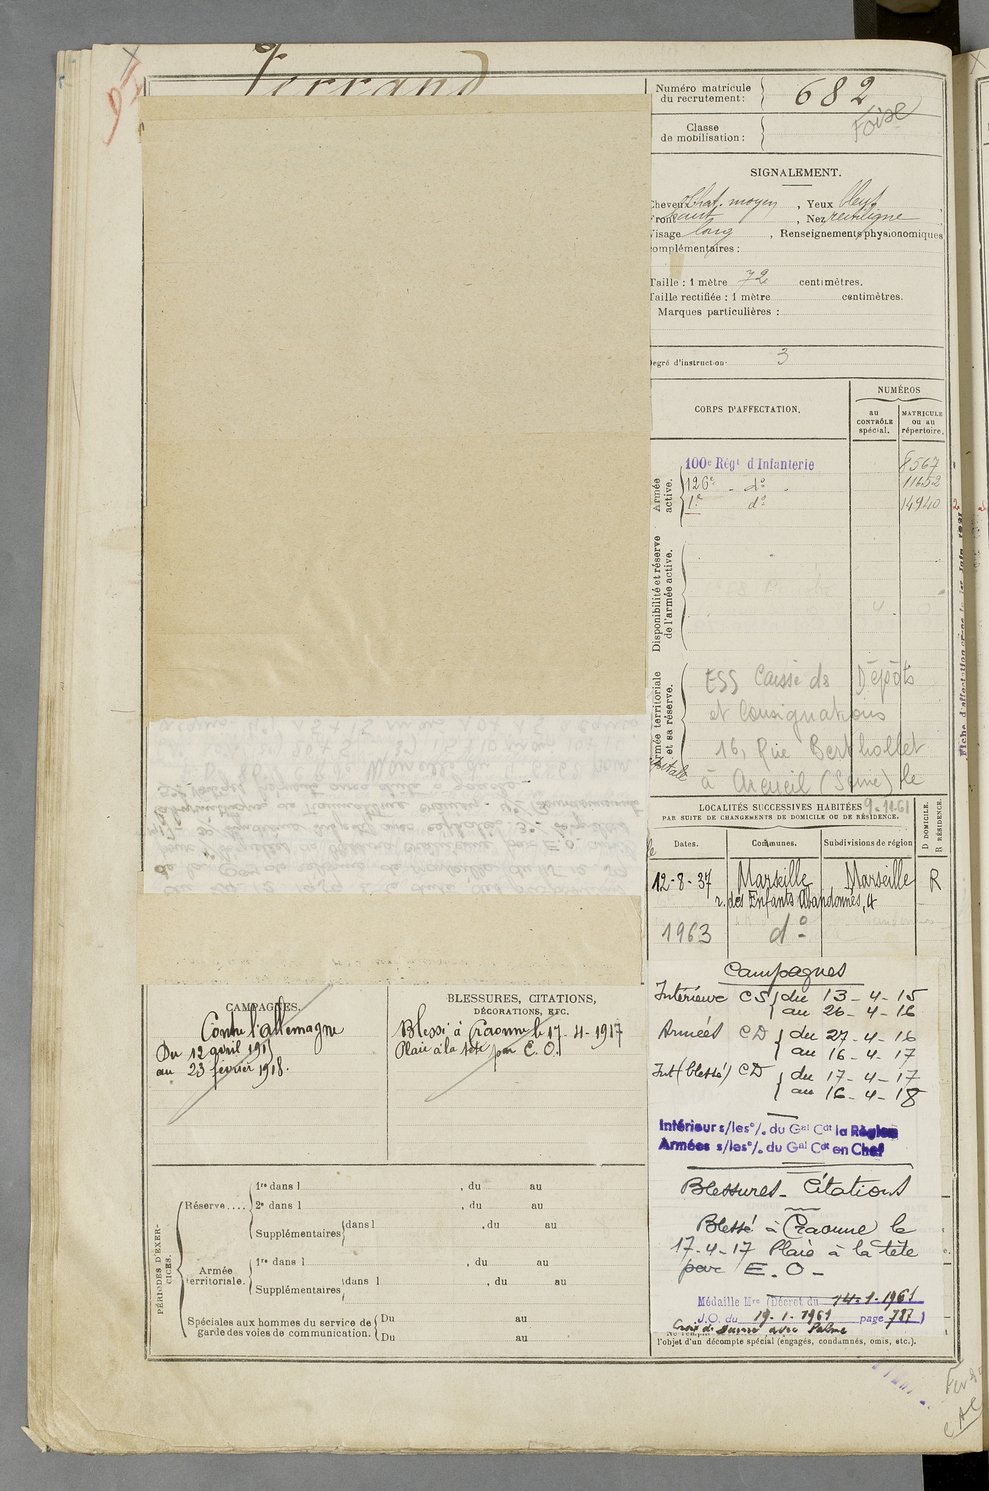 Ferrand
Numéro matricule
du recrutement: 682
Classe
de mobilisation:
SIGNALEMENT.
Cheveux Chat. moyen, Yeux bleus
Front haut, Nez rectiligne
Visage long, Renseignements physionomiques
complémentaires:
Taille: 1 mètre 72 centimètres.
Taille rectifiée: 1 mètre centimètres.
Marques particulières:
Degré d'instruction: 3
CORPS D'AFFECTATION.
NUMÉROS
au
CONTRÔLE
spécial.
MATRICULE
ou au
répertoire.
Armée
active.
100e Régt d'Infanterie 8567
126e - do - 11652
1er do 14940
Disponibilité et réserve
de l'armée active.
Armée territoriale
et sa réserve.
ESS Caisse des Dépôts
et Consignations
16, Rue Berthollet
à Arcueil (Seine) le
9-11-61
LOCALITÉS SUCCESSIVES HABITÉES
PAR SUITE DE CHANGEMENTS DE DOMICILE OU DE RÉSIDENCE.
D DOMICILE.
R RÉSIDENCE.
Dates. Communes. Subdivisions de région
12-8-37 Marseille Marseille R
r. des Enfants Abandonnés, 4
1963 do
CAMPAGNES.
Contre l'Allemagne
Du 12 avril 1915
au 23 février 1918.
BLESSURES, CITATIONS,
DÉCORATIONS, ETC.
Blessé à Craonne le 17-4-1917
Plaie à la tête par E. O.
Campagnes
Intérieure CS du 13-4-15
au 26-4-16
Armées CD du 27-4-16
au 16-4-17
Int (blessé) CD du 17-4-17
au 16-4-18
Intérieur s/les o/. du Gal Cdt la Région
Armées s/les o/. du Gal Cdt en Chef
Blessures - Citations
Blessé à Craonne le
17-4-17 Plaie à la tête
par E.O-
Médaille Mre (Décret du 14-1-1961
J.O. du 19-1-1961 page 787)
Croix de Guerre avec Palme
l'objet d'un décompte spécial (engagés, condamnés, omis, etc.).
PÉRIODES D'EXER-
CICES.
Réserve....
1re dans l , du au
2e dans l , du au
Supplémentaires dans l , du au
Armée
territoriale.
1re dans l , du au
Supplémentaires dans l , du au
Spéciales aux hommes du service de
garde des voies de communication.
Du au
Du au